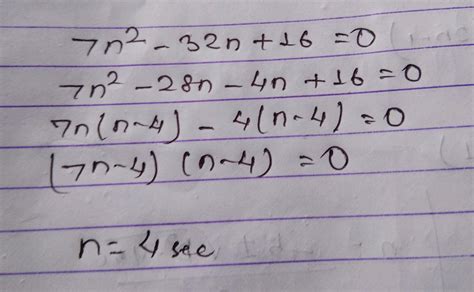 7n² - 32n + 16 = 0
7n² - 28n - 4n + 16 = 0
7n(n-4) - 4(n-4) = 0
(7n-4) (n-4) = 0
n = 4 sec